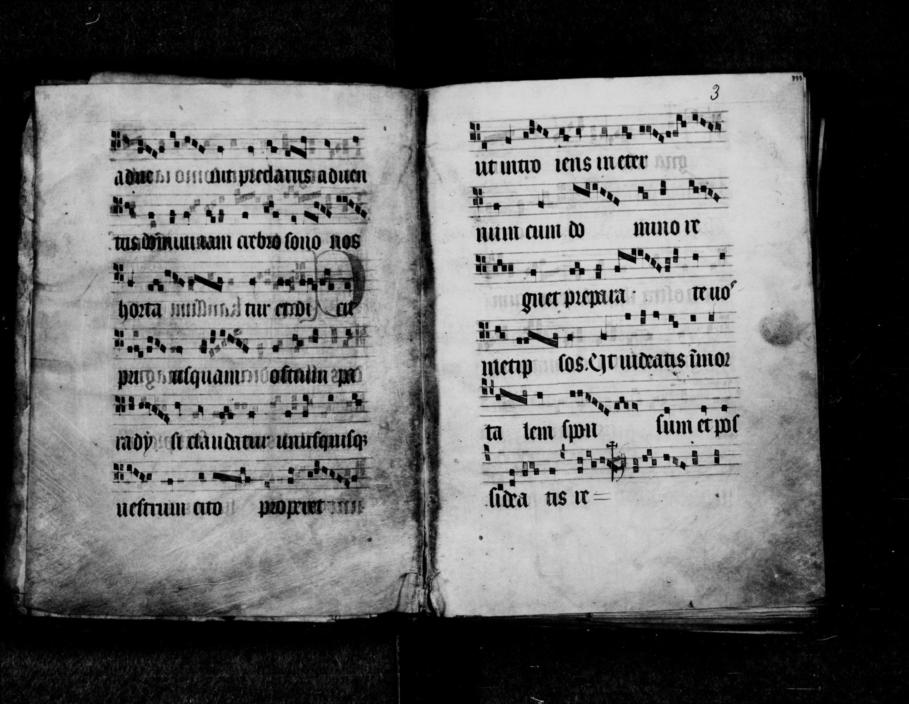 nit preclarus aduen
tus dominum nam crebro sono nos
horta tur et di cit
pri usquam ostium pa
radyſi claudatur unusquisq
uestrum cito properet
3
ut intro iens in eter
num cum do mino re
gnet prepara te uos
metip sos. Ut uideatis inmor
ta lem spon sum et pos
sidea tis re